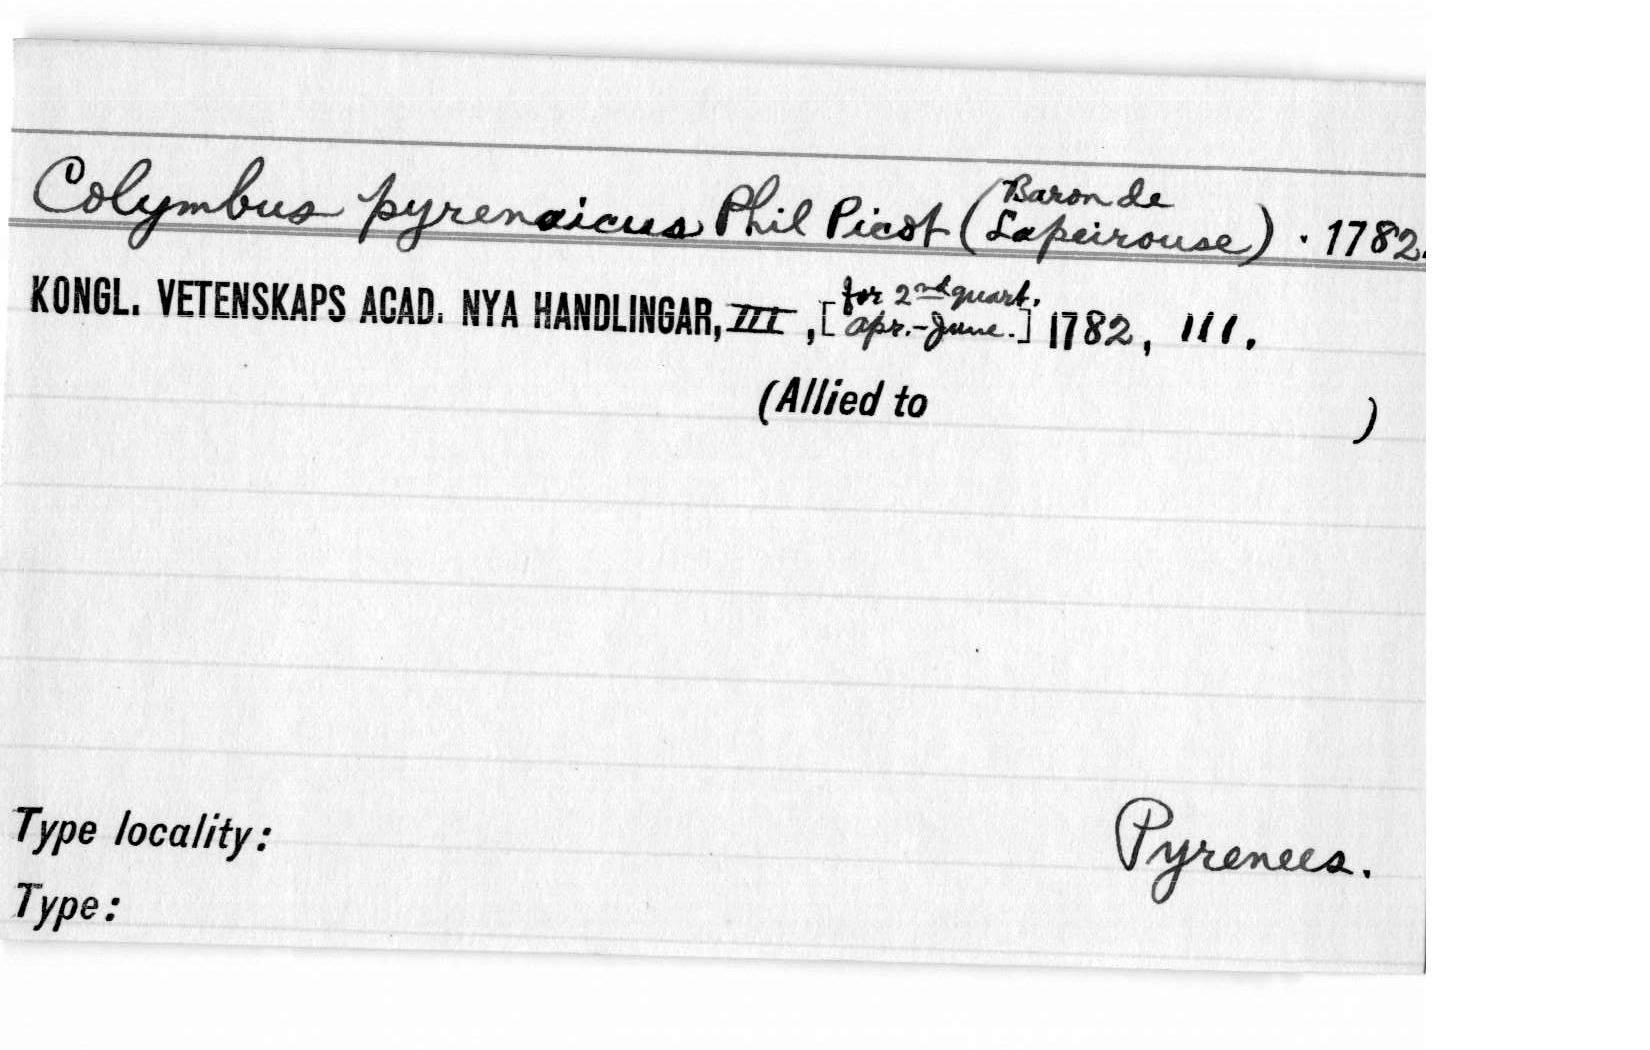 Colymbus pyrenaicus Phil Picot (Baron de Lapeirouse) . 1782.
KONGL. VETENSKAPS ACAD. NYA HANDLINGAR, III, [for 2nd quart. Apr.-June.] 1782, 111.
(Allied to )
Type locality: Pyrenees.
Type: